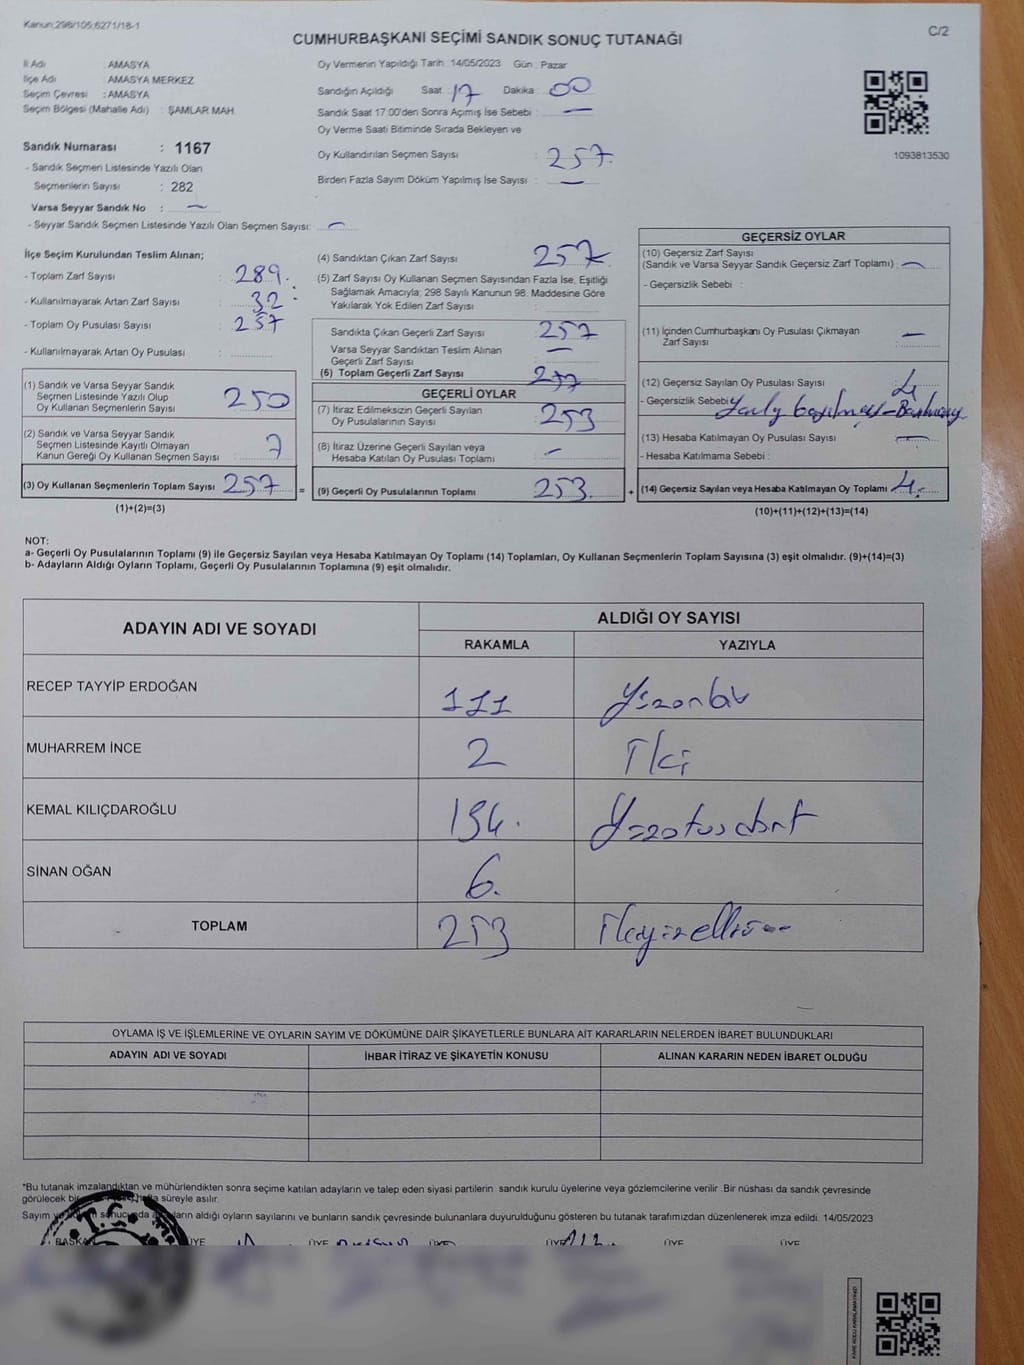 Kanun:298/105,6271/18-1
C/2
CUMHURBAŞKANI SEÇİMİ SANDIK SONUÇ TUTANAĞI
İl Adı : AMASYA
İlçe Adı : AMASYA MERKEZ
Seçim Çevresi : AMASYA
Seçim Bölgesi (Mahalle Adı) : ŞAMLAR MAH.
Sandık Numarası : 1167
- Sandık Seçmen Listesinde Yazılı Olan
Seçmenlerin Sayısı : 282
Varsa Seyyar Sandık No : —
- Seyyar Sandık Seçmen Listesinde Yazılı Olan Seçmen Sayısı: —
Oy Vermenin Yapıldığı Tarih :14/05/2023 Gün : Pazar
Sandığın Açıldığı Saat : 17 Dakika : 00
Sandık Saat 17:00'den Sonra Açılmış İse Sebebi : —
Oy Verme Saati Bitiminde Sırada Bekleyen ve
Oy Kullandırılan Seçmen Sayısı : 257.
Birden Fazla Sayım Döküm Yapılmış İse Sayısı : —
1093813530
İlçe Seçim Kurulundan Teslim Alınan;
- Toplam Zarf Sayısı : 289.
- Kullanılmayarak Artan Zarf Sayısı : 32
- Toplam Oy Pusulası Sayısı : 257
- Kullanılmayarak Artan Oy Pusulası :
(1) Sandık ve Varsa Seyyar Sandık
Seçmen Listesinde Yazılı Olup
Oy Kullanan Seçmenlerin Sayısı 250
(2) Sandık ve Varsa Seyyar Sandık
Seçmen Listesinde Kayıtlı Olmayan
Kanun Gereği Oy Kullanan Seçmen Sayısı 7
(3) Oy Kullanan Seçmenlerin Toplam Sayısı 257 =
(1)+(2)=(3)
(4) Sandıktan Çıkan Zarf Sayısı 257
(5) Zarf Sayısı Oy Kullanan Seçmen Sayısından Fazla İse, Eşitliği
Sağlamak Amacıyla; 298 Sayılı Kanunun 98. Maddesine Göre
Yakılarak Yok Edilen Zarf Sayısı
Sandıkta Çıkan Geçerli Zarf Sayısı 257
Varsa Seyyar Sandıktan Teslim Alınan —
Geçerli Zarf Sayısı
(6) Toplam Geçerli Zarf Sayısı 257
GEÇERLİ OYLAR
(7) İtiraz Edilmeksizin Geçerli Sayılan
Oy Pusulalarının Sayısı 253
(8) İtiraz Üzerine Geçerli Sayılan veya
Hesaba Katılan Oy Pusulası Toplamı —
(9) Geçerli Oy Pusulalarının Toplamı 253. +
GEÇERSİZ OYLAR
(10) Geçersiz Zarf Sayısı
(Sandık ve Varsa Seyyar Sandık Geçersiz Zarf Toplamı) : —
- Geçersizlik Sebebi :
(11) İçinden Cumhurbaşkanı Oy Pusulası Çıkmayan
Zarf Sayısı : —
(12) Geçersiz Sayılan Oy Pusulası Sayısı : 4
- Geçersizlik Sebebi
(13) Hesaba Katılmayan Oy Pusulası Sayısı : —
- Hesaba Katılmama Sebebi :
(14) Geçersiz Sayılan veya Hesaba Katılmayan Oy Toplamı 4.
(10)+(11)+(12)+(13)=(14)
NOT:
a- Geçerli Oy Pusulalarının Toplamı (9) ile Geçersiz Sayılan veya Hesaba Katılmayan Oy Toplamı (14) Toplamları, Oy Kullanan Seçmenlerin Toplam Sayısına (3) eşit olmalıdır. (9)+(14)=(3)
b- Adayların Aldığı Oyların Toplamı, Geçerli Oy Pusulalarının Toplamına (9) eşit olmalıdır.
ADAYIN ADI VE SOYADI
ALDIĞI OY SAYISI
RAKAMLA YAZIYLA
RECEP TAYYİP ERDOĞAN 111 Yüzonbir
MUHARREM İNCE 2 İki
KEMAL KILIÇDAROĞLU 134. Yüzotuzdört
SİNAN OĞAN 6.
TOPLAM 253 İkiyüzelliüç
OYLAMA İŞ VE İŞLEMLERİNE VE OYLARIN SAYIM VE DÖKÜMÜNE DAİR ŞİKAYETLERLE BUNLARA AİT KARARLARIN NELERDEN İBARET BULUNDUKLARI
ADAYIN ADI VE SOYADI İHBAR İTİRAZ VE ŞİKAYETİN KONUSU ALINAN KARARIN NEDEN İBARET OLDUĞU
*Bu tutanak imzalandıktan ve mühürlendikten sonra seçime katılan adayların ve talep eden siyasi partilerin sandık kurulu üyelerine veya gözlemcilerine verilir .Bir nüshası da sandık çevresinde
görülecek bir hafta süreyle asılır.
Sayım ve sonucunda aldığı oyların sayılarını ve bunların sandık çevresinde bulunanlara duyurulduğunu gösteren bu tutanak tarafımızdan düzenlenerek imza edildi. 14/05/2023
BAŞKAN ÜYE ÜYE ÜYE ÜYE ÜYE ÜYE
T.C.